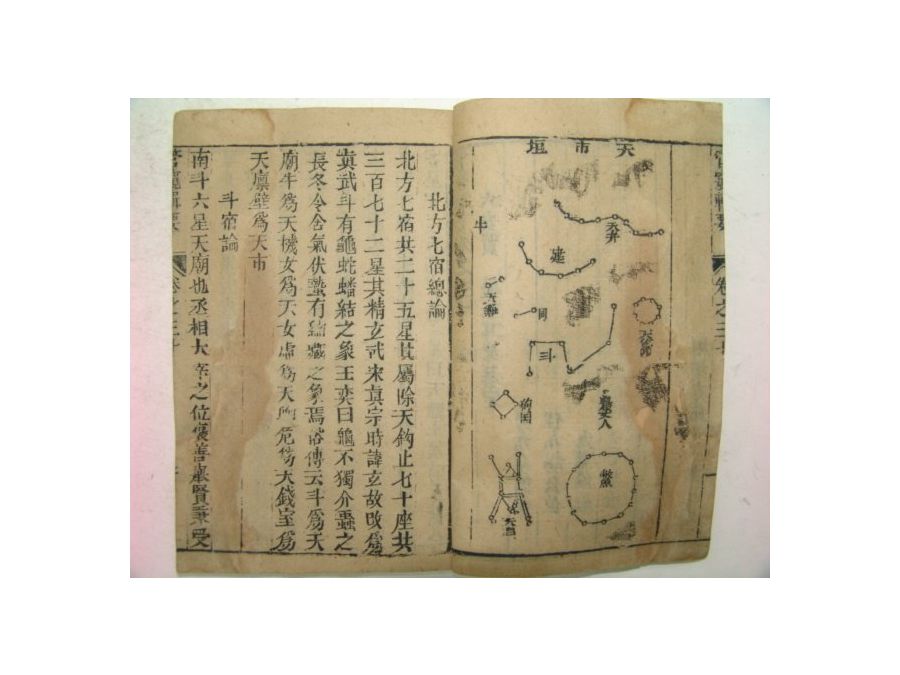 天市垣
天弁
建
天雞
狗
斗
天籥
農丈人
狗国
鱉
牛
管窺輯要
卷之三十
北方七宿總論
北方七宿共二十五星其屬除天鈎止七十座共
三百七十二星其精玄武宋真宗時諱玄故改為
真武斗有龜蛇蟠結之象王奕曰龜不獨介蟲之
長冬令含氣伏蟄有龜藏之象焉俗傳云斗為天
廟牛為天機女為天女虛為天府危為天錢室為
天廪壁為天市
斗宿論
南斗六星天廟也丞相大宰之位褒善進賢秉受
管窺輯要
卷之三十